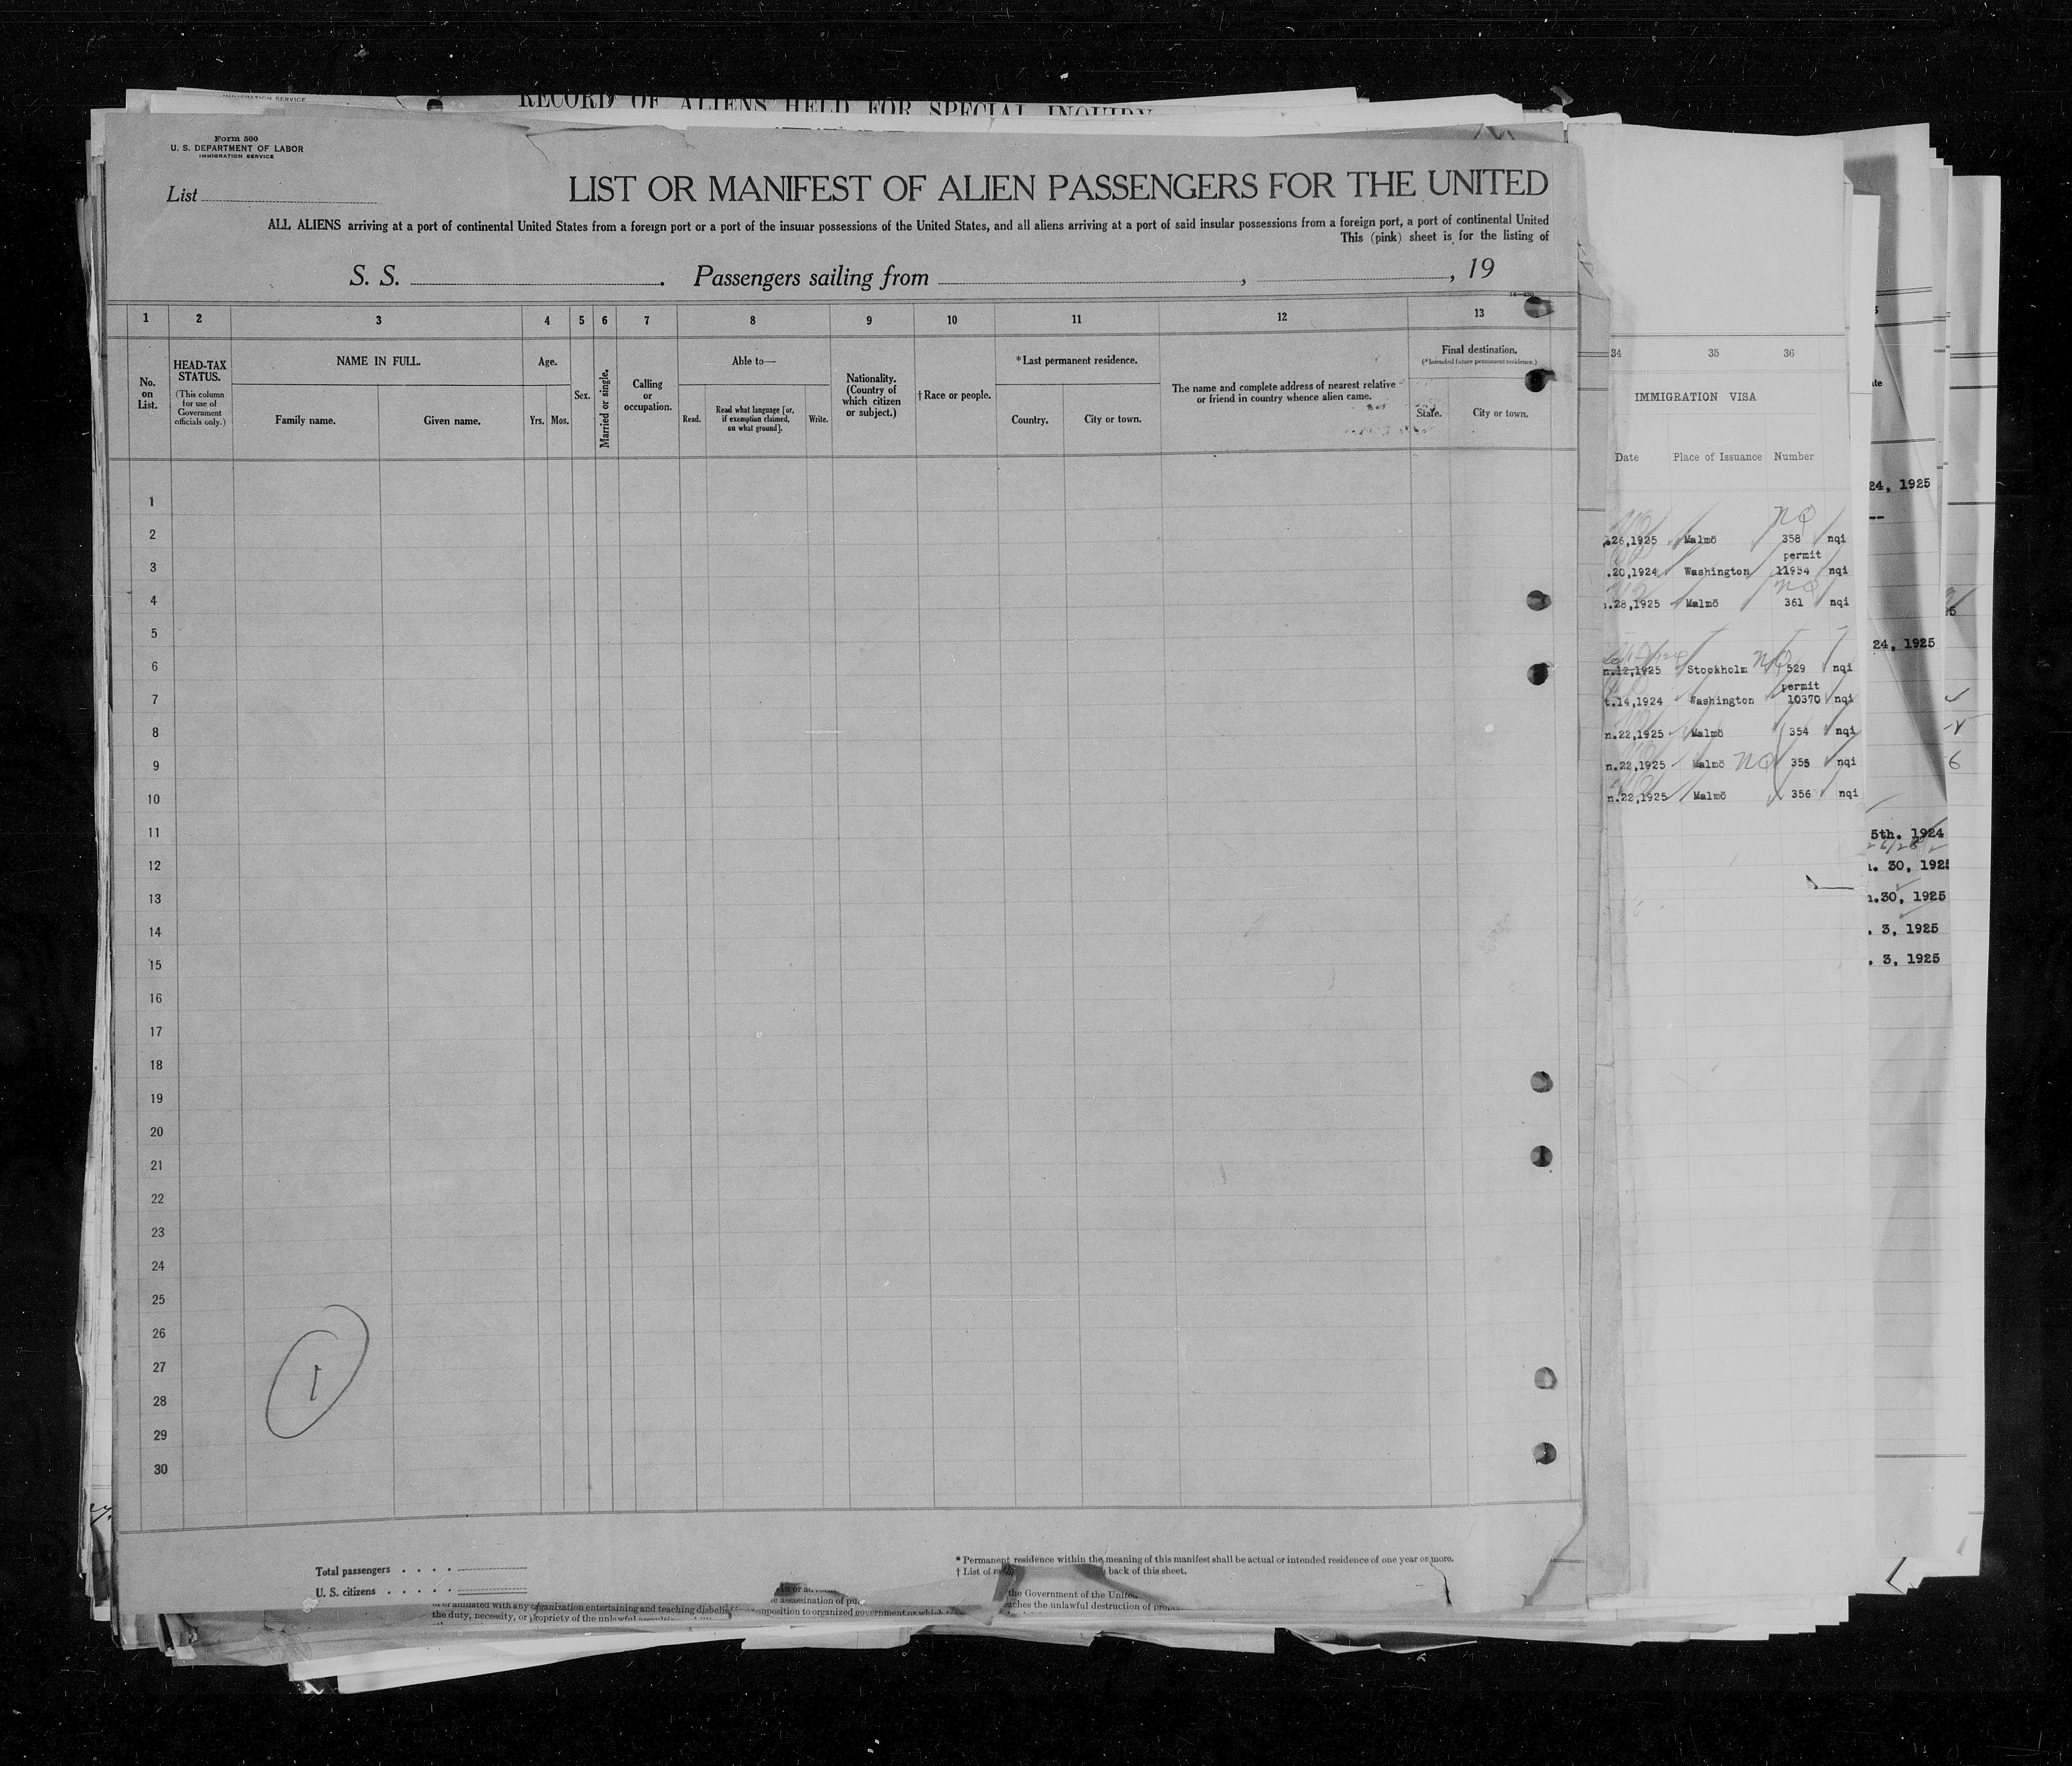 IMMIGRATION SERVICE
RECORD OF ALIENS HELD FOR SPECIAL INQUIRY
Form 500
U. S. DEPARTMENT OF LABOR
IMMIGRATION SERVICE
List
LIST OR MANIFEST OF ALIEN PASSENGERS FOR THE UNITED
ALL ALIENS arriving at a port of continental United States from a foreign port or a port of the insular possessions of the United States, and all aliens arriving at a port of said insular possessions from a foreign port, a port of continental United
This (pink) sheet is for the listing of
S. S. . Passengers sailing from , , 19
1 2 3 4 5 6 7 8 9 10 11 12 13
No. on List.
HEAD-TAX STATUS.
(This column for use of Government officials only.)
NAME IN FULL.
Family name. Given name.
Age.
Yrs. Mos.
Sex.
Married or single.
Calling or occupation.
Able to—
Read. Read what language [or, if exemption claimed, on what ground]. Write.
Nationality. (Country of which citizen or subject.)
† Race or people.
*Last permanent residence.
Country. City or town.
The name and complete address of nearest relative or friend in country whence alien came.
Final destination.
(*Intended future permanent residence.)
State. City or town.
1
2
3
4
5
6
7
8
9
10
11
12
13
14
15
16
17
18
19
20
21
22
23
24
25
26
27
28
29
30
1
Total passengers . . . .
U. S. citizens . . . . .
* Permanent residence within the meaning of this manifest shall be actual or intended residence of one year or more.
† List of back of this sheet.
the Government of the
assassination of
the unlawful destruction of
or affiliated with any organization entertaining and teaching opposition to organized government or which
the duty, necessity, or propriety of the unlawful
34 35 36
IMMIGRATION VISA
Date Place of Issuance Number
NQ
.26,1925 Malmö 358 nqi
permit
.20,1924 Washington 11954 nqi
NQ
.28,1925 Malmö 361 nqi
n.12,1925 Stockholm NQ 529 nqi
permit
t.14,1924 Washington 10370 nqi
n.22,1925 Malmö 354 nqi
n.22,1925 Malmö NQ 355 nqi
n.22,1925 Malmö 356 nqi
24, 1925
24, 1925
6
5th. 1924
. 30, 1925
.30, 1925
. 3, 1925
. 3, 1925